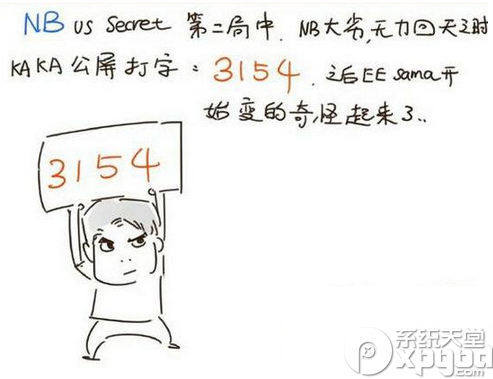 NB us Secret 第二局中. NB大劣,无力回天之时
KAKA公屏打字: 3154. 之后EE sama开
始变的奇怪起来了..
3154
系统天堂
xpgod